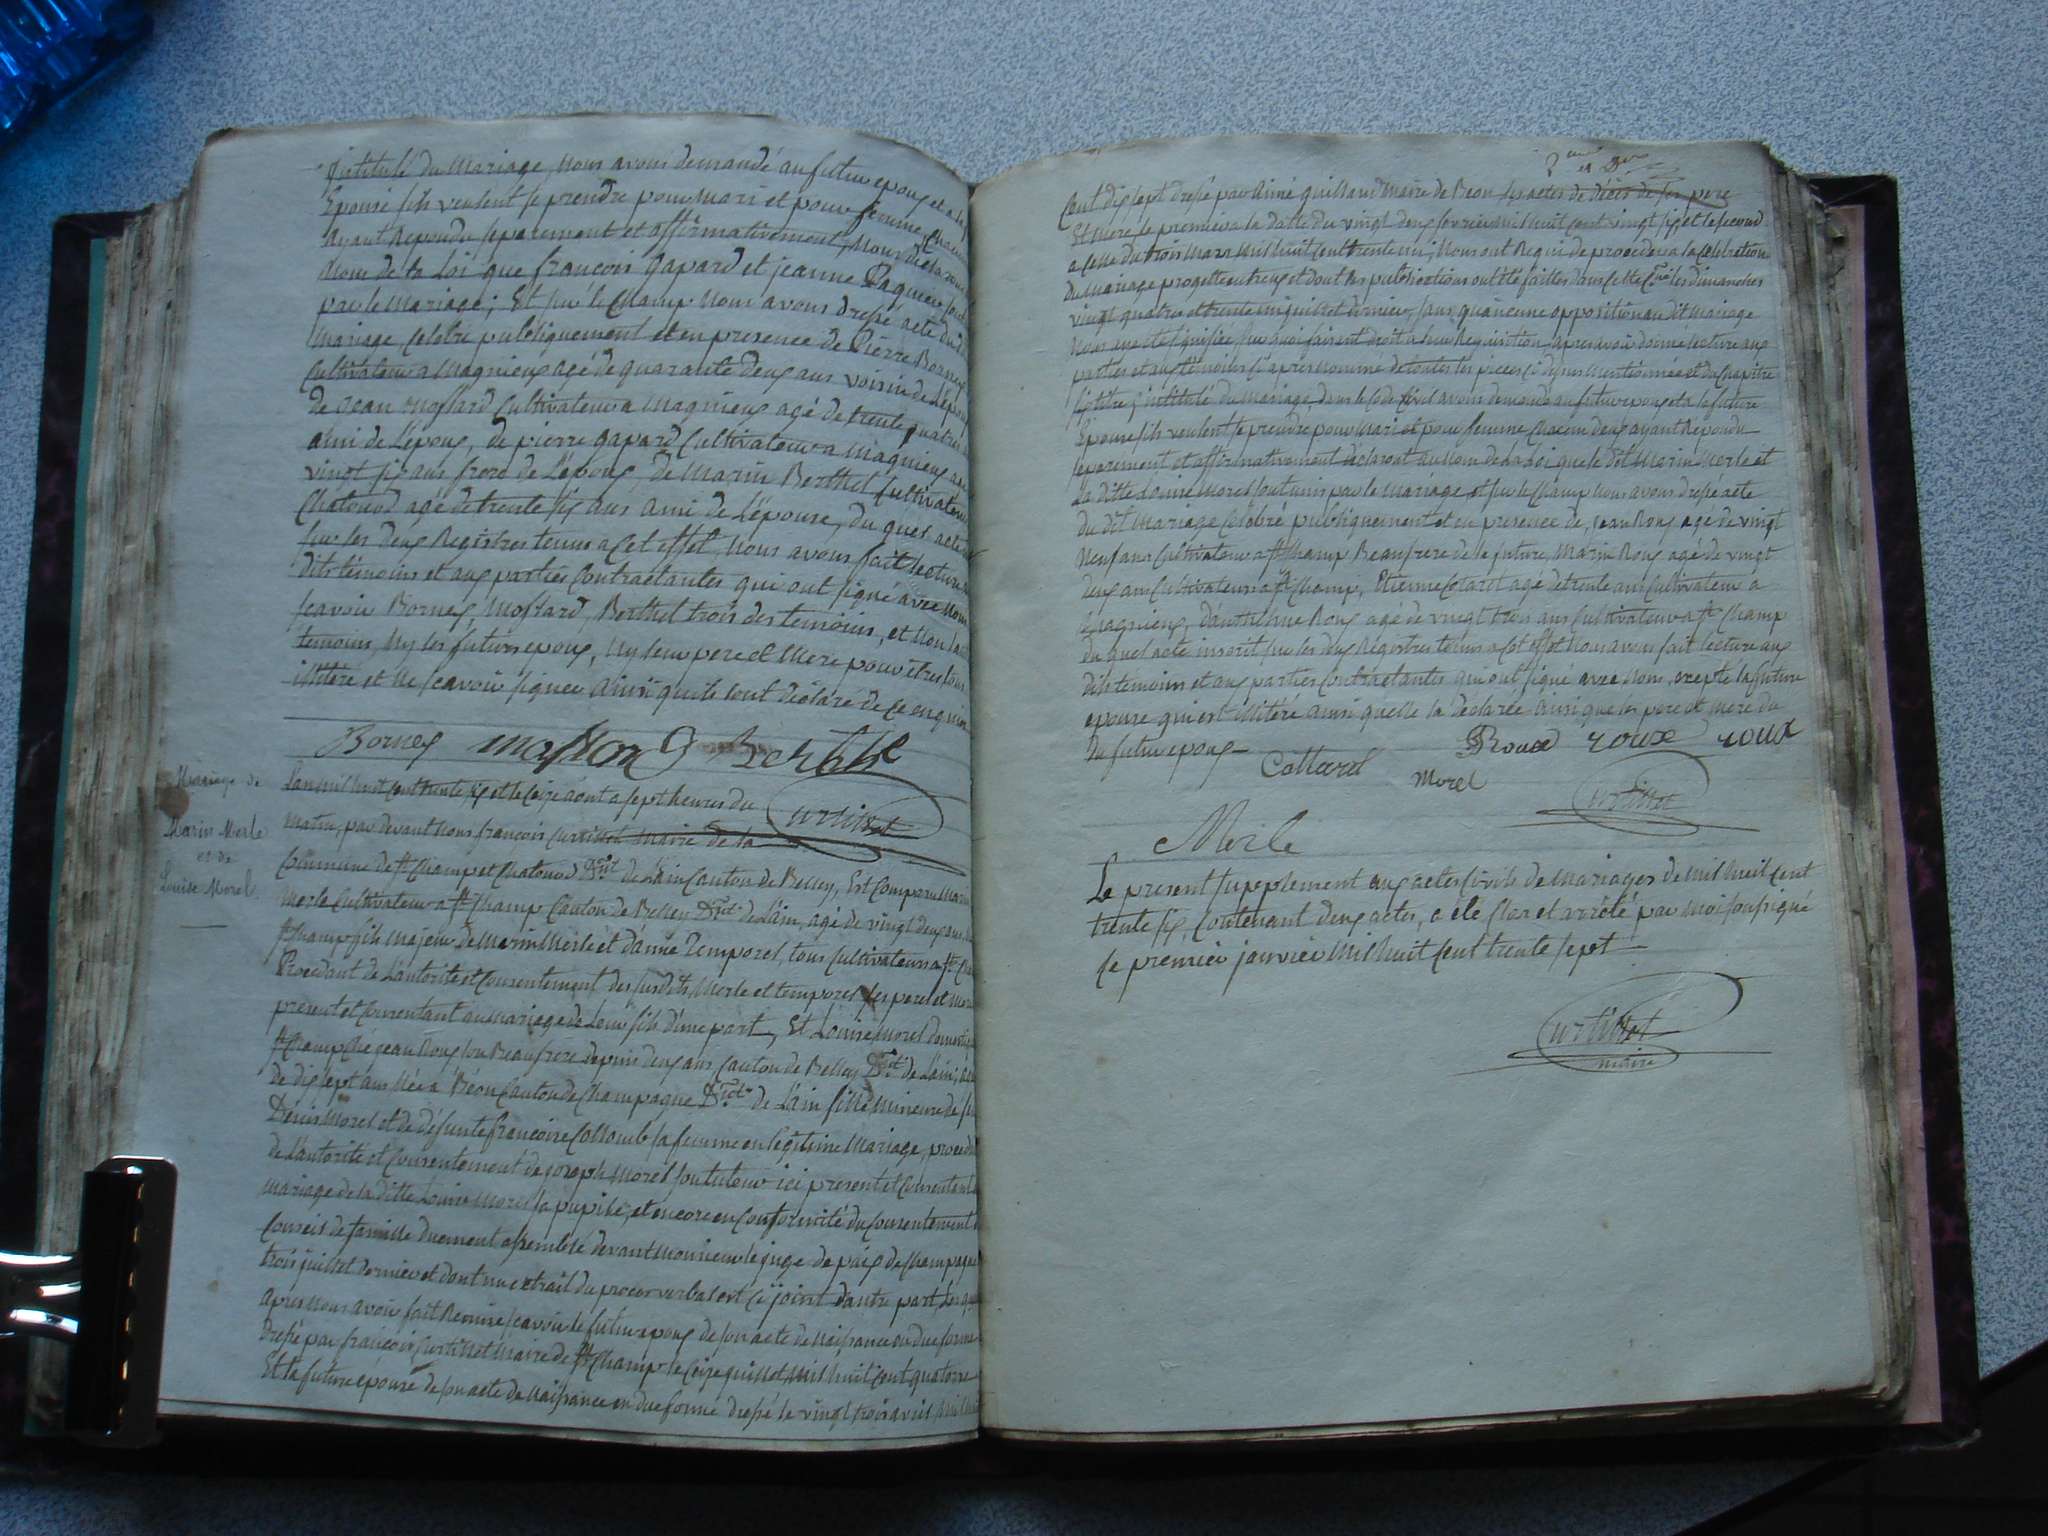 Intitulé du Mariage, Nous avons demandé au futur epoux et a la
Epouse s'ils veulent se prendre pour Mari et pour femme, Chacun
Ayant Repondu separement et affirmativement, Nous
Nom de la Loi que francois gapard et jeanne Paquier sont
par le Mariage; Et sur le Champ Nous avons dressé acte du dit
Mariage Celebré publiquement et en presence de Pierre Bornex
Cultivateur a Magnieux agé de quarante deux ans voisin de l'époux
De jean Mossard Cultivateur a Magnieux agé de trente quatre
ami de L'époux, de pierre gapard Cultivateur a Magnieux agé
vingt six ans frere de L'époux, de Marin Berthet Cultivateur
Chatonod agé de trente six ans ami de L'épouse, du quel acte
sur les deux Registres tenus a Cet effet Nous avons fait lecture
dits témoins et aux parties Contractantes qui ont signé avec Nous
scavoir Bornex, Mossard, Berthet trois des temoins, et Non
temoins, Ny les futurs epoux, Ny leur pere et Mere pour être tous
illitéré et Ne scavoir signer Ainsi qu'ils l'ont déclaré de Ce enquis
Bornex Berthet
Mariage de
Marin Merle
et de
Louise Morel
L'an mil huit cent trente six et le seize aout a sept heures du
Curtillet
matin, par devant Nous francois Curtillet Maire de la
Commune de St Champ et Chatonod Dépt de L'ain Canton de Belley, Est Comparu Marin
Merle Cultivateur a St Champ Canton de Belley Dépt de L'ain, agé de vingt deux ans
St Champ fils Majeur de Marin Merle et d'anne Temporel, tous Cultivateurs a St
Procedant de L'autorité et Consentement des susdits Merle et temporel ses pere et Mere
present et Consentant au Mariage de Leur fils d'une part, Et Louise Morel
St Champ Ché jean Roux son Beaufrere depuis deux ans Canton de Belley Dépt de L'ain,
de dix sept ans Née a Béon Canton de Champagne Dépt de L'ain fille Mineure de
Denis Morel et de défunte francoise Collomb sa femme en legitime Mariage, procedant
de L'autorité et Consentement de joseph Morel son tuteur ici present et Consentant
mariage de la ditte Louise Morel sa pupille, et encore en Conformité du Consentement
Conseil de famille duement assemblé devant Monsieur le juge de paix de Champagne
trois juillet dernier et dont un extrait du proces verbal est Ci joint d'autre part,
Apres Nous avoir fait Remise scavoir le futur epoux de son acte de Naissance en due forme
Dressé par francois Curtillet Maire de St Champ le seize juillet Mil huit cent quatorze
Et la future épouse de son acte de Naissance en due forme dressé le vingt trois avril
Cent dix sept dressé par Aimé Maire de Béon, les actes de décès de ses pere
Et Mere le premier a la datte du vingt deux fevrier Mil huit Cent vingt six et le second
a Celle du trois Mars Mil huit Cent trente un, Nous ont Requis de proceder a la Celebration
du Mariage projetté entreux et dont les publications ont été faittes dans cette Cne les dimanches
vingt quatre et trente un juillet dernier, sans qu'aucune opposition au dit Mariage
Nous aye été signifiée sur quoi faisant droit a leur Requisition, apres avoir donné lecture aux
parties et aux témoins Ci apres Nommé de toutes les pieces Ci dessus Mentionnée et du Chapitre
six titre 5 intitulé du Mariage, dans le Code Civil avons demandé au futur epoux et a la future
Epouse s'ils veulent se prendre pour Mari et pour femme Chacun deux ayant Repondu
separement et affirmativement declarons au Nom de la loi que le dit Marin Merle et
La ditte Louise Morel sont unis par le Mariage et sur le Champ Nous avons dressé acte
du dit Mariage Celebré publiquement et en presence de, jean Roux agé de vingt
Neuf ans Cultivateur a St Champ Beaufrere de la future, Marin Roux agé de vingt
deux ans Cultivateur a St Champ, Etienne agé de trente ans Cultivateur a
Magnieux, d'anthelme Roux agé de vingt trois ans Cultivateur a St Champ
du quel acte inscrit sur les deux Régistres tenus a Cet effet Nous avons fait lecture aux
dits temoins et aux parties Contractantes qui ont signé avec Nous, excepté la future
epouse qui est illitéré ainsi quelle la déclarée Ainsi que les pere et Mere du
du futur epoux
Roux roux roux
Morel
Curtillet
Merle
Le present supplement aux actes Civils de Mariages de Mil huit Cent
trente six, Contenant deux actes, a été Clos et arrêté par Moi soussigné
Le premier janvier Mil huit Cent trente sept
Curtillet
maire